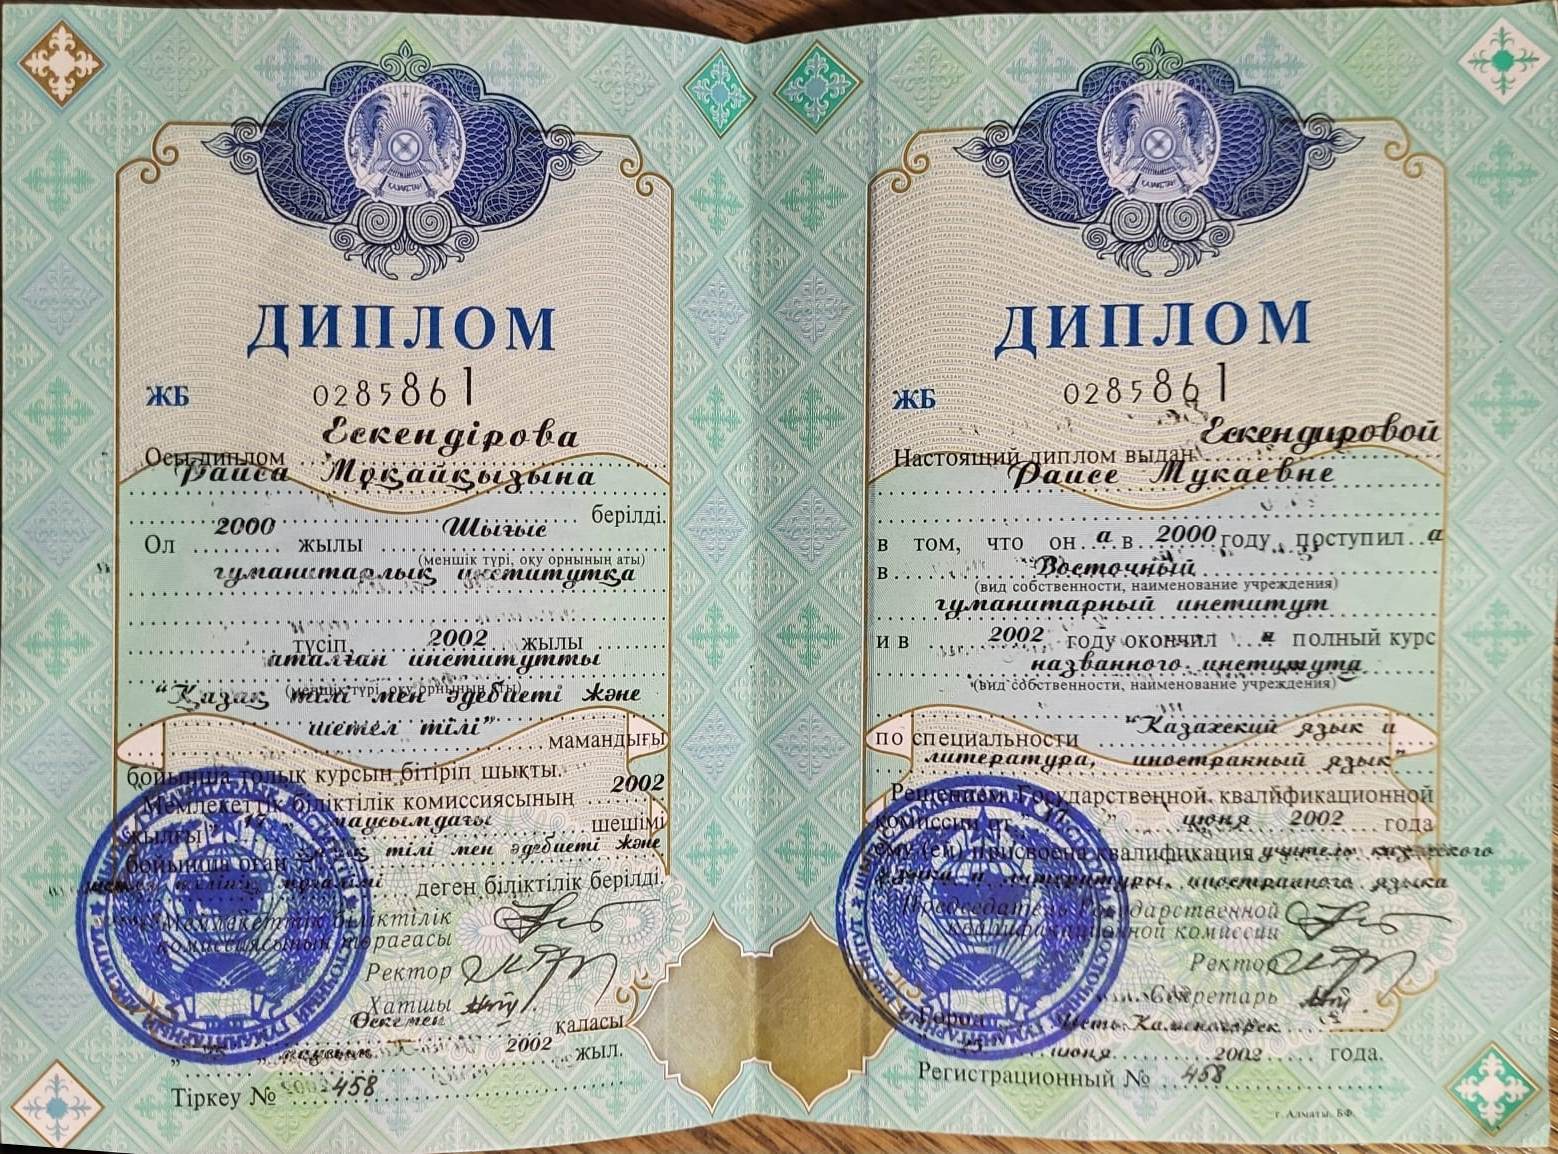 ҚАЗАҚСТАН
ДИПЛОМ
ЖБ 0285861
Ескендірова
Осы диплом
Раиса Мұқайқызына
берілді.
Ол 2000 жылы Шығыс
(меншік түрі, оқу орнының аты)
гуманитарлық институтқа
түсіп, 2002 жылы
аталған институтты
(меншік түрі, оқу орнының аты)
“Қазақ тілі мен әдебиеті және
шетел тілі”
мамандығы
бойынша толық курсын бітіріп шықты.
Мемлекеттік біліктілік комиссиясының 2002
жылғы маусымдағы шешімі
бойынша оған қазақ тілі мен әдебиеті және
шетел тілінің мұғалімі деген біліктілік берілді.
Мемлекеттік біліктілік
комиссиясының төрағасы
Ректор
Хатшы
Өскемен қаласы
маусым 2002 жыл.
Тіркеу № 458
ҚАЗАҚСТАН
ДИПЛОМ
ЖБ 0285861
Ескендировой
Настоящий диплом выдан
Раисе Мукаевне
в том, что он а в 2000 году поступил а
в Восточный
(вид собственности, наименование учреждения)
гуманитарный институт
и в 2002 году окончил а полный курс
названного института
(вид собственности, наименование учреждения)
“Казахский язык и
по специальности
литература, иностранный язык”
Решением Государственной квалификационной
комиссии от июня 2002 года
ему (ей) присвоена квалификация учитель казахского
языка и литературы, иностранного языка
Председатель Государственной
квалификационной комиссии
Ректор
Секретарь
Город Усть-Каменогорск
июня 2002 года.
Регистрационный № 458
г. Алматы, БФ.